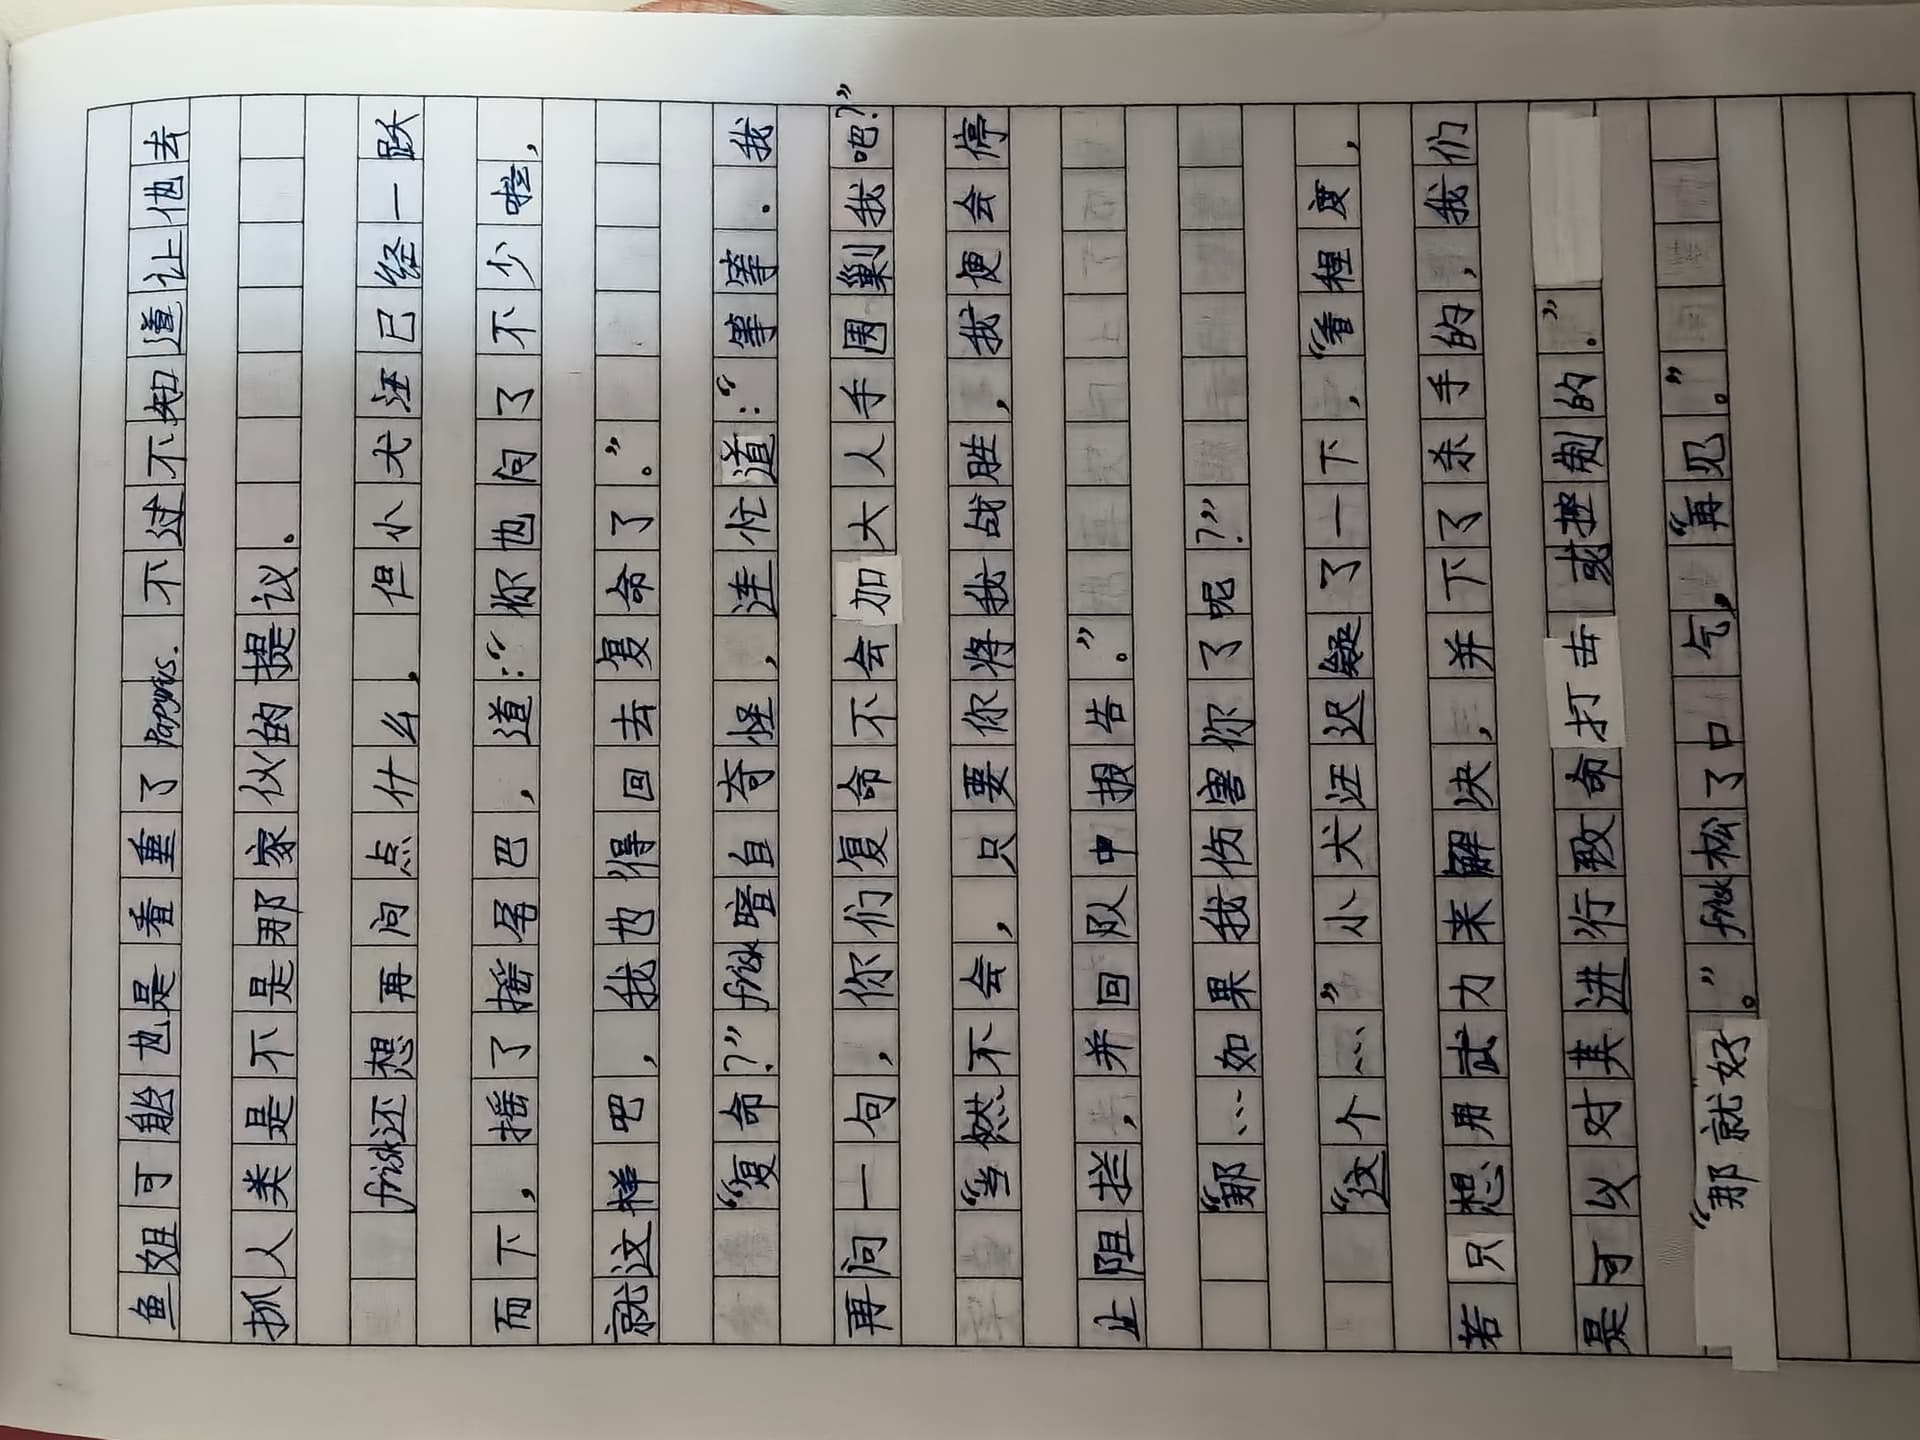 鱼姐可能也是看重了Papyrus.不过不知道让他去
抓人类是不是那家伙的提议。
frisk还想再问点什么,但小犬汪已经一跃
而下,摇了摇尾巴,道:“你也问了不少啦,
就这样吧,我也得回去复命了。”
“复命?”frisk暗自奇怪,连忙道:“等等.我
再问一句,你们复命不会加大人手围剿我吧?”
“当然不会,只要你将我战胜,我便会停
止阻拦,并回队中报告。”
“那…如果我伤害你了呢?”
“这个…”小犬汪迟疑了一下,“看程度,
若只想用武力来解决,并下了杀手的,我们
是可以对其进行致命打击或控制的.”
“那就好。”frisk松了口气,“再见。”